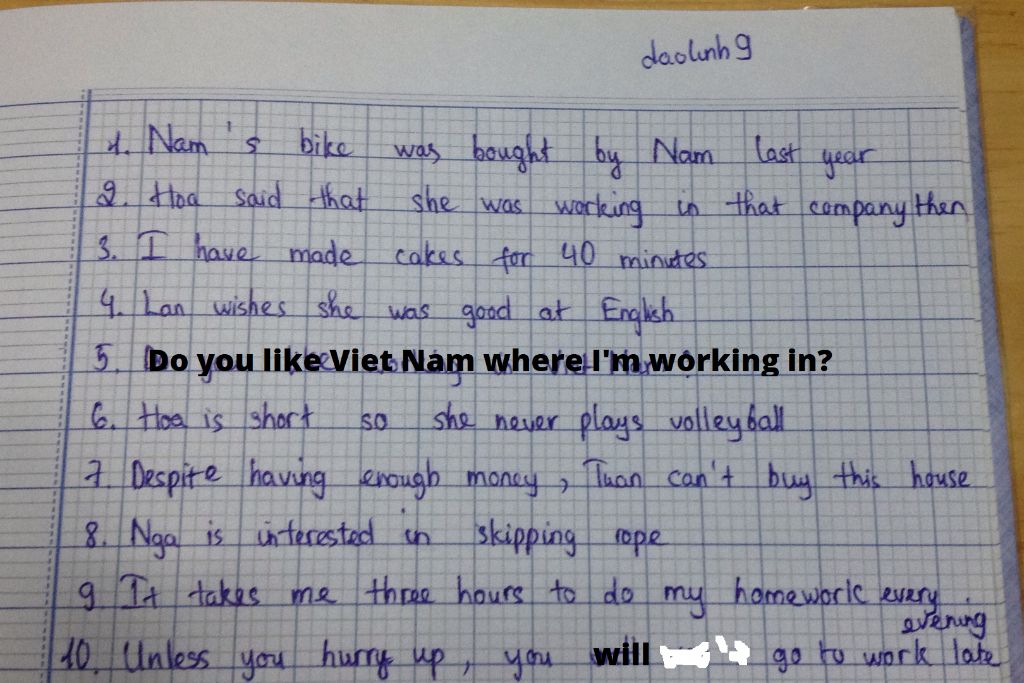 daolinh9
1. Nam's bike was bought by Nam last year
2. Hoa said that she was working in that company then
3. I have made cakes for 40 minutes
4. Lan wishes she was good at English
5. Do you like Viet Nam where I'm working in?
6. Hoa is short so she never plays volleyball
7. Despite having enough money, Tuan can't buy this house
8. Nga is interested in skipping rope
9 It takes me three hours to do my homework every.
evening
10. Unless you hurry up, you will go to work late